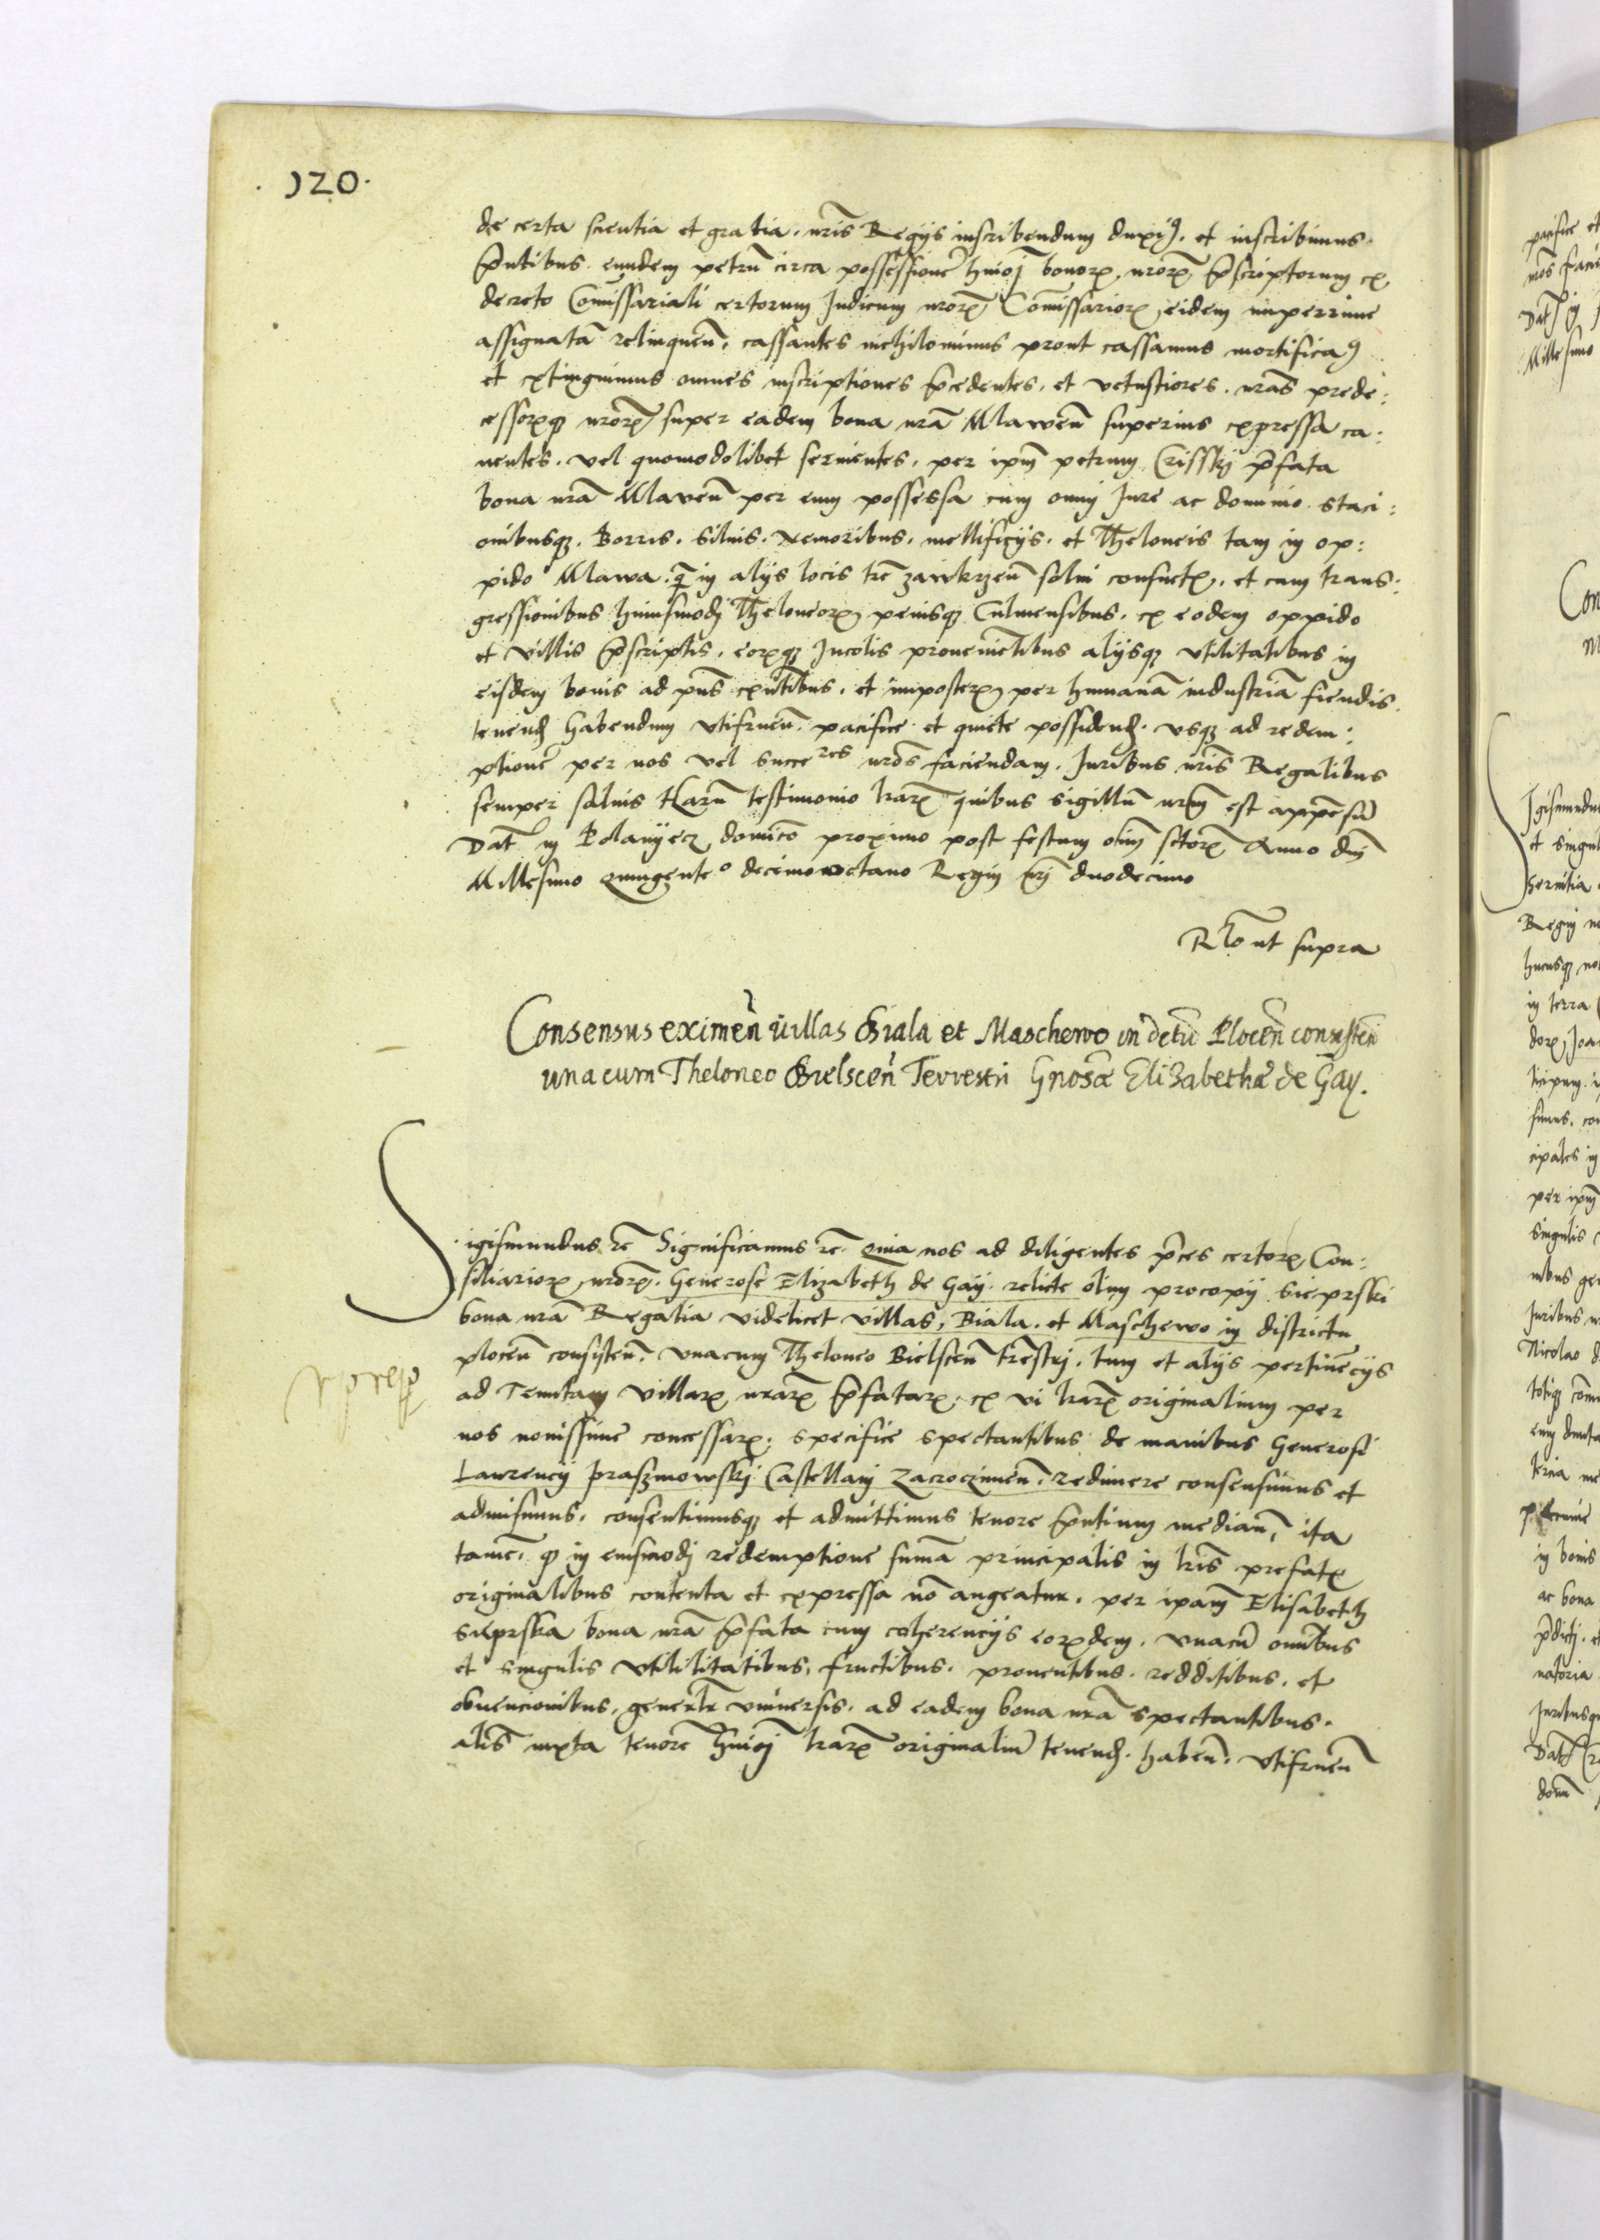 . 120 .
de certa scientia et gratia . nr̃is Regijs inscribendum duxiꝰ . et inscribimus .
p̃ntibus eundem petrũ circa possessionẽ hmõi bonorꝝ nrõrꝝ p̃scriptorum ex
decreto Com̃issariali certorum Judicum nrõrꝝ Com̃issariorꝝ eidem nuperrime
assignatã relinquen̄ . cassantes nichilominus prout cassamus mortificaꝰ
et extinguimus omnes inscriptiones p̃cedentes . et vetustiores . nrãs prede :
cessorꝝqꝫ nrõrꝝ super eadem bona nrã Mlawen̄ superius expressa ca :
nentes . vel quomodolibet seruientes . per ipm̃ petrum Crisskj p̃fata
bona nrã Mlaven̄ per eum possessa cum omnj Jure ac dominio . staci :
onibusqꝫ . Borris . siluis . nemoribus . mellificijs . et Theloneis tam in op :
pido Mlawa . q̃ in alijs locis tr̃e zawkrzen̄ solui consuetꝭ . et cum trans :
gressionibus huiusmodj Theloneorꝝ penisqꝫ Culmensibus . ex eodem oppido
et villis p̃scriptis . eorꝝqꝫ Incolis prouenientibus alijsqꝫ vtilitatibus in
eisdem bonis ad pñs exñtibus . et imposterꝝ per humanã industriã fiendis .
tenendꝭ habendum vtifruen̄ . pacifice et quiete possidendꝭ . vsqꝫ ad redem :
ptionẽ per nos vel succeres nrõs faciendam . Juribus nr̃is Regalibus
semper saluis Harũ testimonio lrarꝝ quibus sigillũ nrm̃ est appẽsũ
Dat̃ in Polanyecz dominico proximo post festum om̃ sctõrꝝ Anno dñj
Millesimo quingenteo decimooctauo Regnj nr̃j duodecimo
Rl̃o ut supra
Consensus eximen̄ villas Biala et Maschewo in dct̃u Plocen̄ consisten̄
una cum Theloneo Bielscen̄ Terrestri Gnosæ Elizabethæ de Gay .
Sigismundus ꝛc̃ Significamus ꝛc̃ . Quia nos ad diligentes p̃ces certorꝝ Con :
siliariorꝝ nrõrꝝ . Generose Elizabeth de Gay . relicte olim procopij Sieprski
bona nrã Regalia videlicet villas , Biala . et Maschewo in districtu
plocen̄ consisten̄ . vnacum Theloneo Bielscen̄ tr̃estrj . tum et alijs pertinẽcijs
ad Tenutam villarꝝ nrarꝝ p̃fatarꝝ . ex vi lrarꝝ originalium per
nos nouissime concessarꝝ . specifice spectantibus de manibus Generosi
Lawrencij praszmowskj Castellanj Zacroczimen̄ . redimere consensimus et
admisimus . consentimusqꝫ et admittimus tenore p̃ntium median̄ , ita
tamẽ . qꝫ in eiusmodj redemptione sum̃a principalis in lr̃is prefatꝭ
originalibus contenta et expressa nõ augeatur . per ipam̃ Elisabeth
Sieprska bona nrã p̃fata cum coherencijs eorꝝdem . vnacũ om̃ibus
et singulis vtililitatibus , fructibus . prouentibus . redditibus . et
obuencionibus , genelr̃ vniuersis . ad eadem bona nrã spectantibus .
alĩs iuxta tenorẽ hmõi lrarꝝ originaliũ tenendꝭ . haben̄ . vtifruen̄